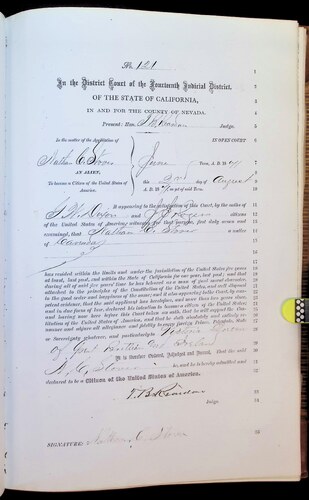 No. 121
1
2
In the District Court of the Fourteenth Judicial District,
3
OF THE STATE OF CALIFORNIA,
4
IN AND FOR THE COUNTY OF NEVADA.
5
Present: Hon. Judge. 6
In the matter of the Application of IN OPEN COURT
Nathan C. Stover June Term, A. D. 18 7
AN ALIEN, 8
To become a Citizen of the United States of this 2nd day of August 9
America. A. D. 18 10
It appearing to the satisfaction of this Court, by the 11
oaths of and citizens 12
of the United States of America witnesses for that purpose, first duly sworn and 13
examined, that Nathan C. Stover a native 14
of Canada 15
has resided within the limits and under the jurisdiction of the United States five years
at least, last past, and within the State of California for one year, last past; and that
during all of said five years' time he has behaved as a man of good moral character,
attached to the principles of the Constitution of the United States, and well disposed
to the good order and happiness of the same; and it also appearing to this Court, by com-
petent evidence, that the said applicant has heretofore, and more than two years since,
and in due form of law, declared his intention to become a citizen of the United States,
and having now here before this Court taken an oath, that he will support the Con-
stitution of the United States of America, and that he doth absolutely and entirely re-
nounce and abjure all allegiance and fidelity to every foreign Prince, Potentate, State
or Sovereignty whatever, and particularly to Victoria Queen
of Great Britain and Ireland
It is therefore Ordered, Adjudged and Decreed, That the said
N. C. Stover be, and he is hereby admitted and
declared to be a Citizen of the United States of America.
Judge.
SIGNATURE: Nathan C. Stover